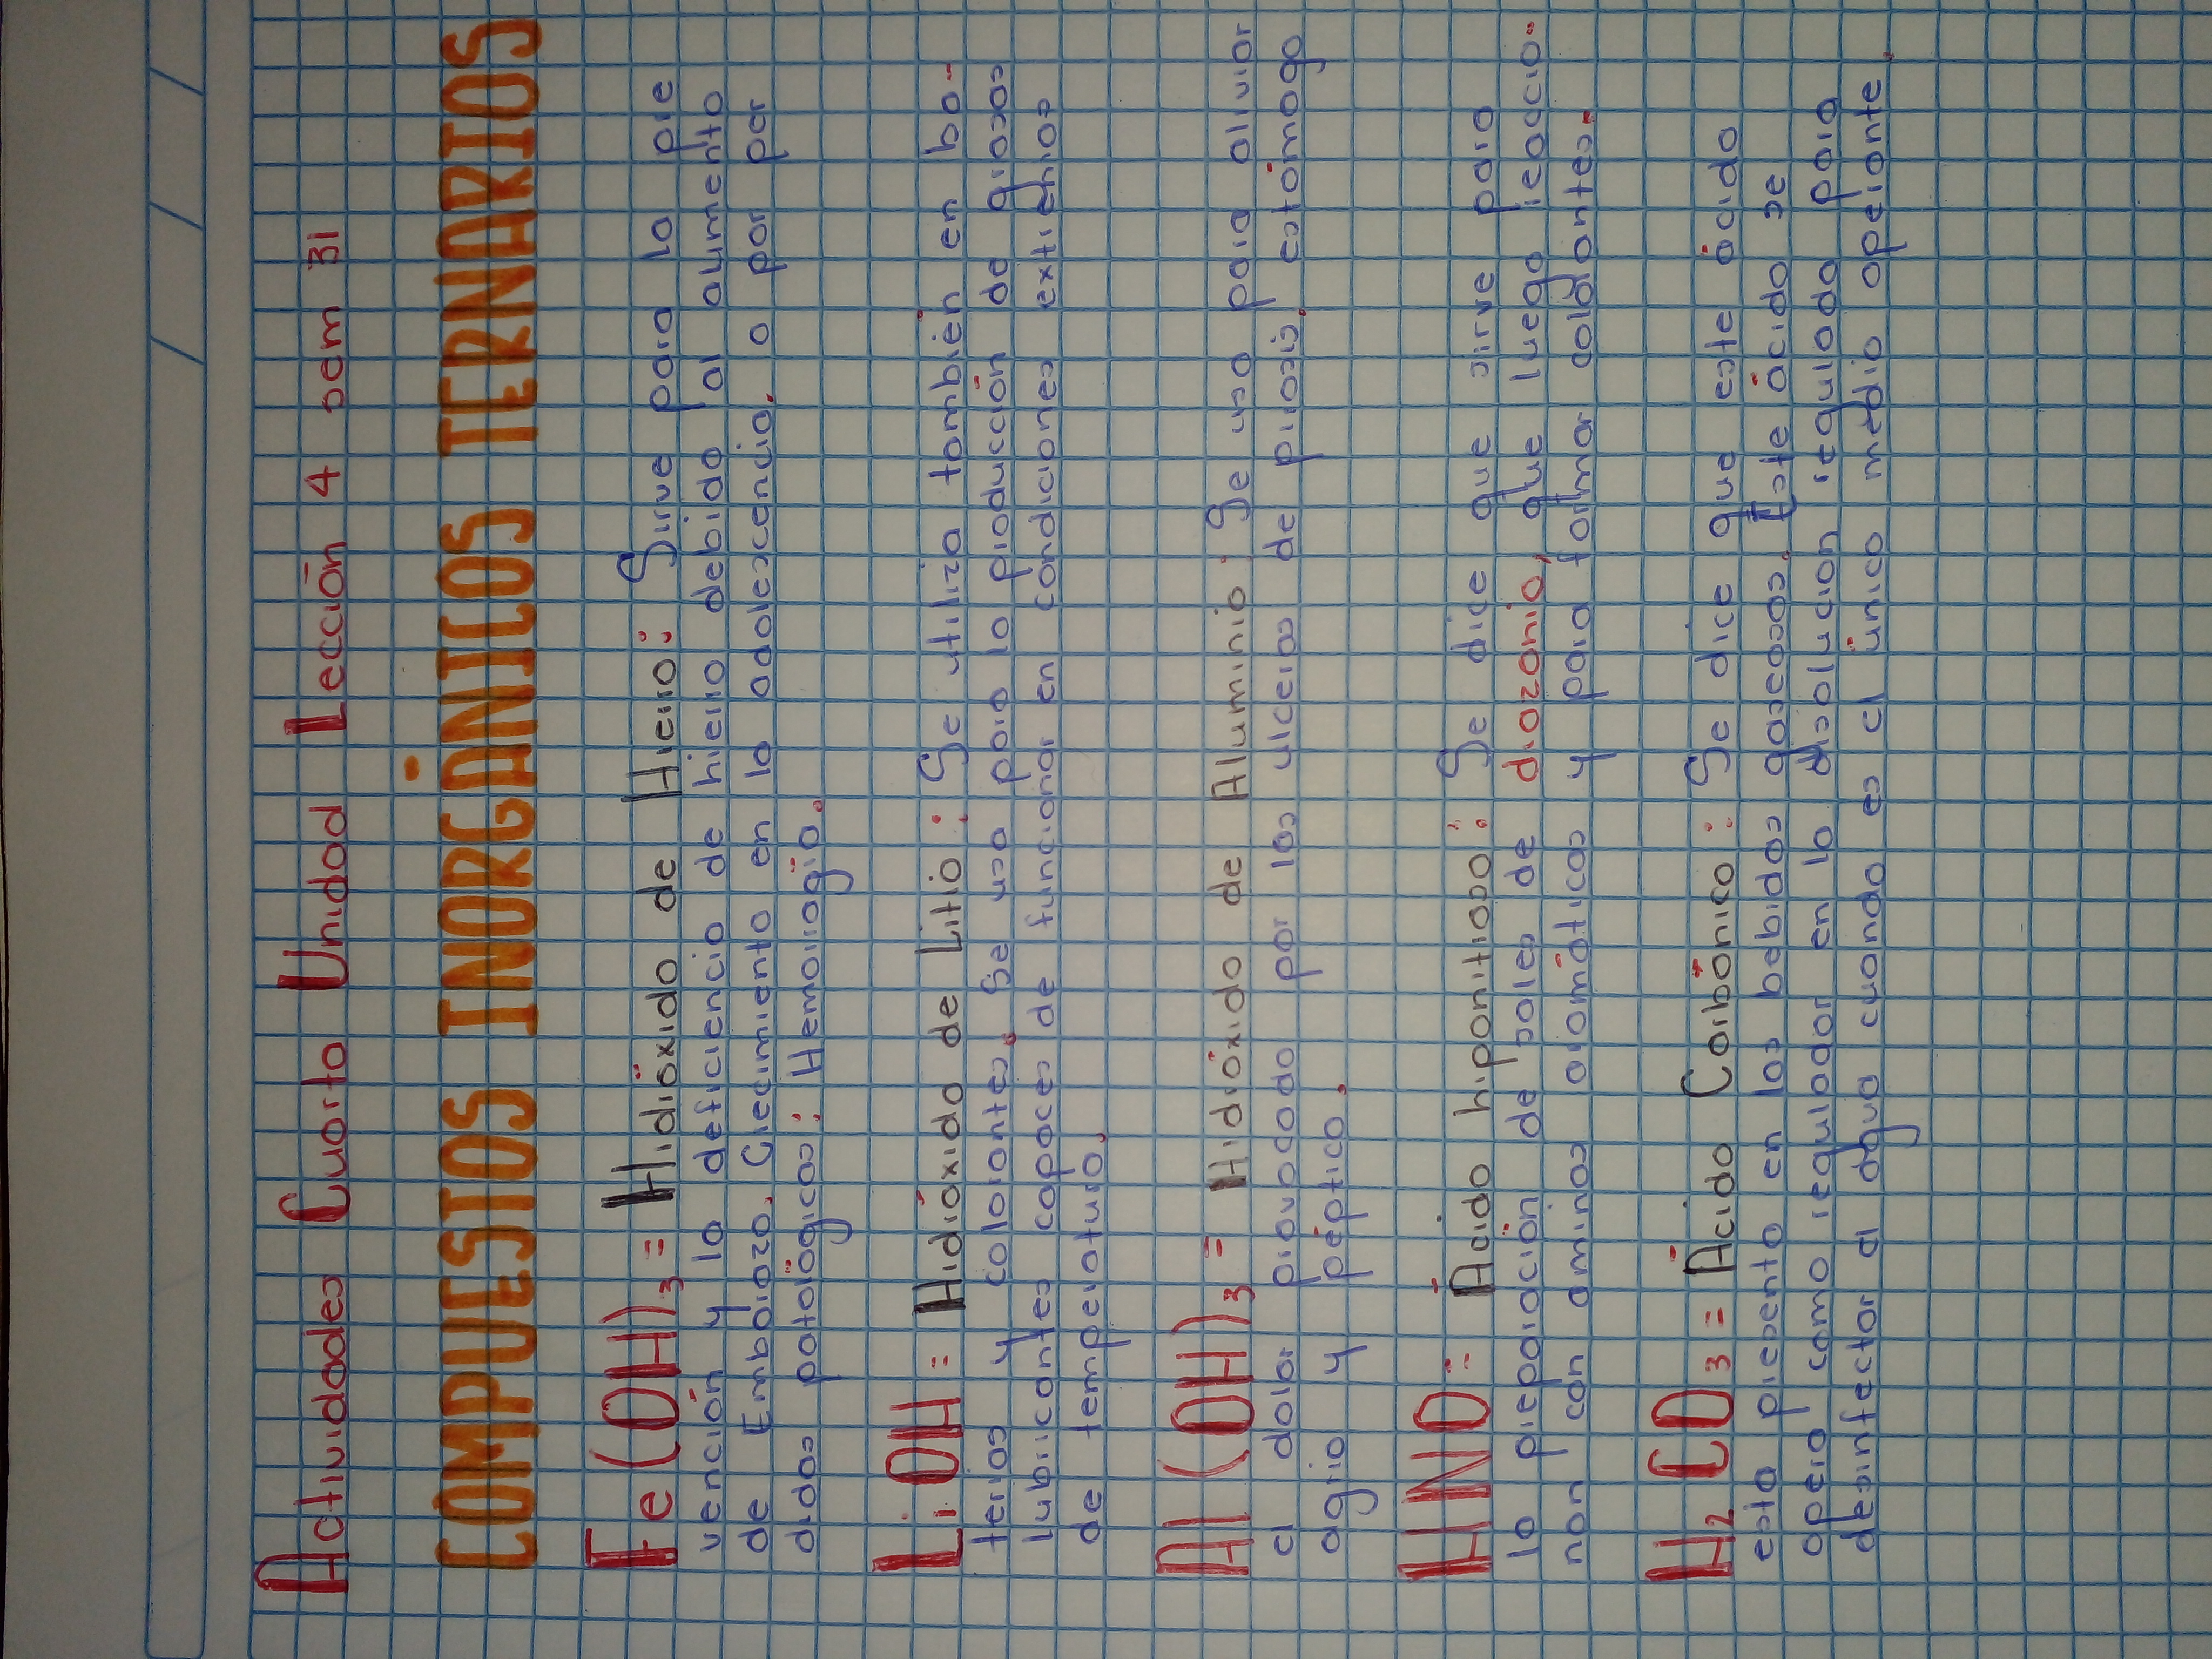 Actividades Cuarto Unidad Lección 4 sem 31
COMPUESTOS INORGÁNICOS TERNARIOS
Fe(OH)3 = Hidróxido de Hierro: Sirve para la pre
vención y la deficiencia de hierro debido al aumento
de Embarazo. Crecimiento en la adolescencia. o por per
didas patológicas: Hemorragia.
LiOH = Hidróxido de Litio: Se utiliza también en ba-
terias y colorantes. Se usa para la producción de grasas
lubricantes capaces de funcionar en condiciones extremas
de temperatura.
Al(OH)3 = Hidróxido de Aluminio: Se usa para aliviar
el dolor provocado por las ulceras de pirosis, estómago
agrio y péptico.
HNO = Ácido hiponitroso: Se dice que sirve para
la preparación de sales de diazonio, que luego reaccio.
nan con aminas aromáticas y para formar colorantes.
H2CO3 = Ácido Carbónico: Se dice que este ácido
esta presente en las bebidas gaseosas. Este ácido se
opera como regulador en la disolucion regulada para
desinfectar el agua cuando es el único medio operante.